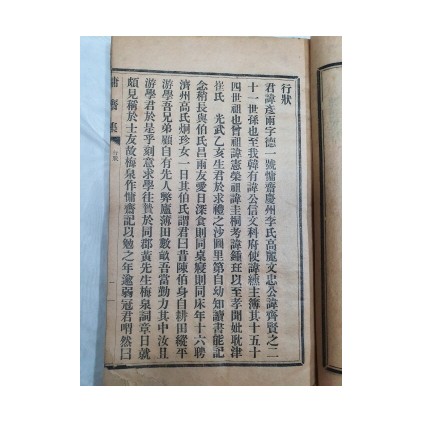 行狀
君諱彥雨字德一號慵齋慶州李氏高麗文忠公諱齊賢之二
十一世孫也至我韓有諱公信文科府使諱 主簿其十五十
四世祖也曾祖諱憲榮祖諱圭桐考諱鍾 以至孝聞妣耽津
崔氏 光武乙亥生君於求禮之沙圖里第自幼知讀書能記
念稍長與伯氏昌雨友愛日深食則同桌寢則同床年十六聘
濟州高氏炯珍女一日其伯氏謂君曰昔陳伯身自耕田縱平
游學吾兄弟顧自有先人弊廬薄田數畝吾當勤力其中汝且
游學君於是乎刻意求學往贄於同郡黃先生梅泉詞章日就
頗見稱於士友故梅泉作慵齋記以勉之年逾弱冠君喟然曰
慵齋集
行狀
一